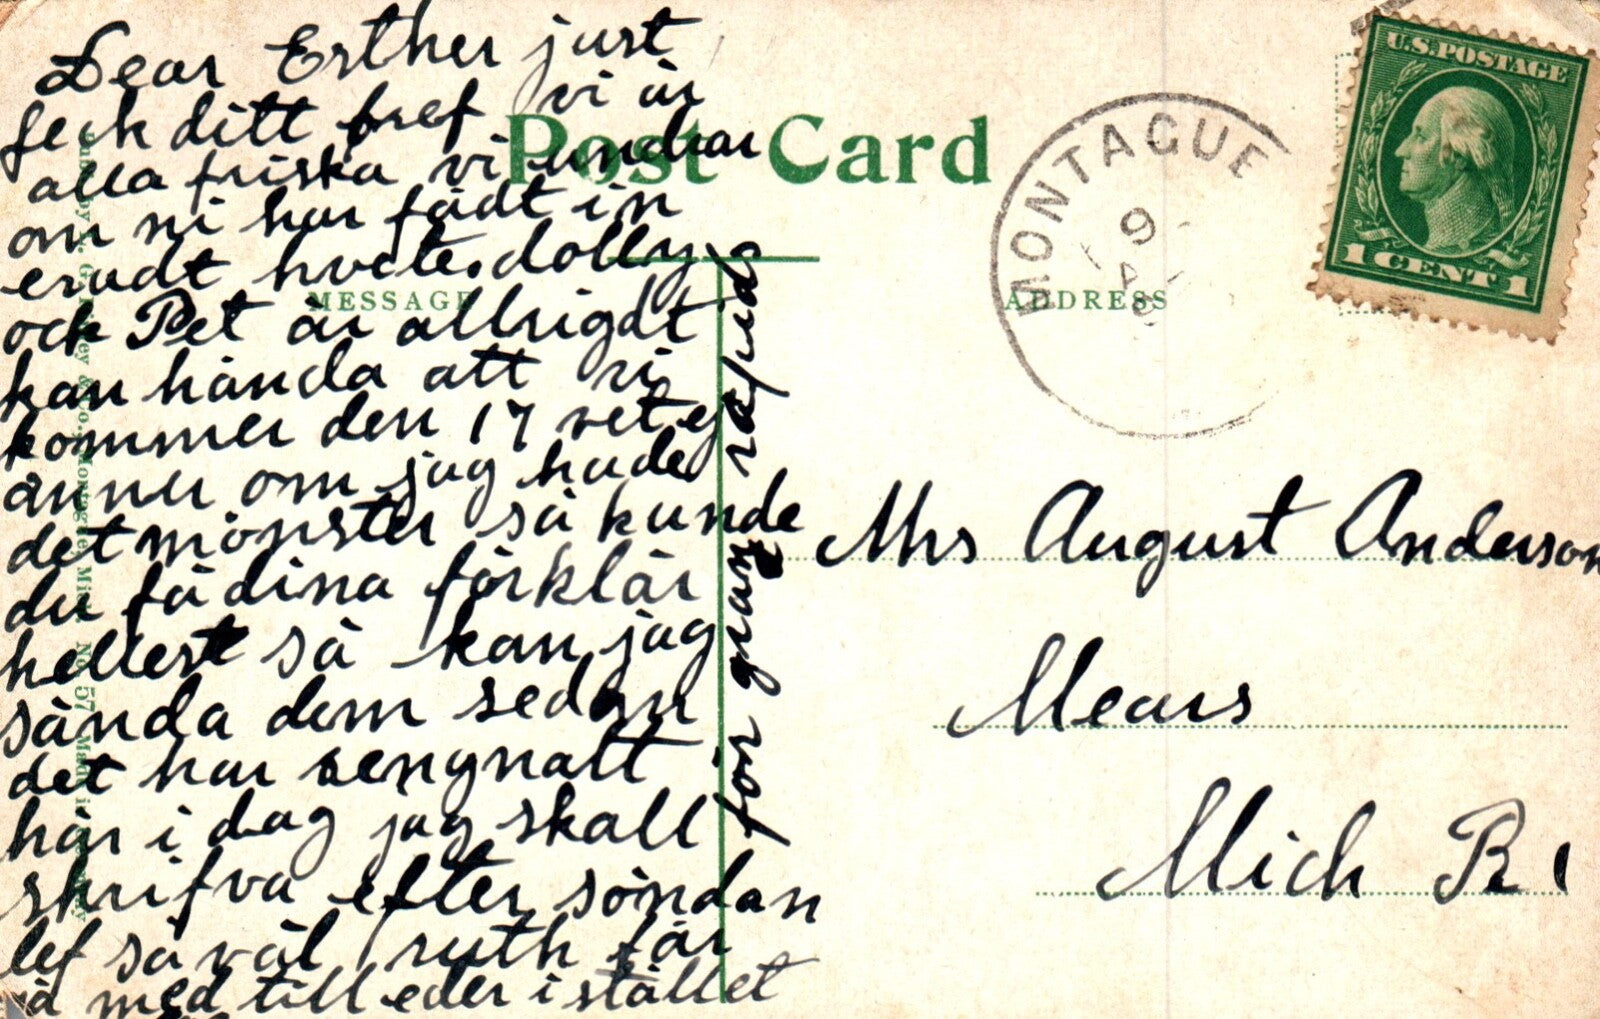 Dear Esther just
feck ditt bref vi är
alla friska vi undrar
om ni har fådt in
eradt hvete. dolly
och Pet är allrigdt
kan hända att vi
kommer den 17 vet ej
änner om jag hade
det mönster så kunde
du få dina förklär
hellest så kan jag
sända dem sedan
det har rengnatt
här i dag jag skall
skrifva efter söndan
lef så väl ruth får
gå med till eder i stället
for gran rapids
Post Card
MESSAGE
ADDRESS
MONTAGUE
9
A
U.S. POSTAGE
1 CENT 1
Mrs August Anderson
Mears
Mich R 1